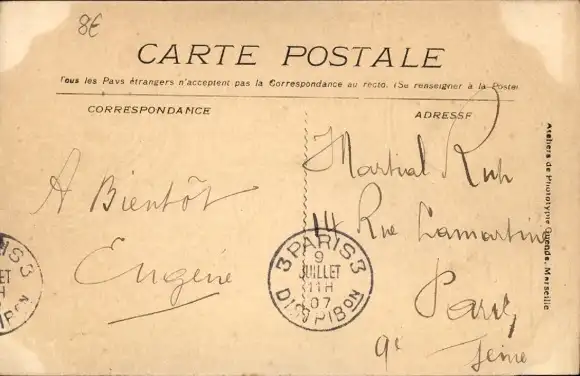 8€
CARTE POSTALE
Tous les Pays étrangers n'acceptent pas la Correspondance au recto. (Se renseigner à la Poste)
CORRESPONDANCE
ADRESSE
A Bientôt
Eugène
Martial
14 Rue Lamartine
Paris
9e Seine
3 PARIS 3
9
JUILLET
11H
07
DISTRIBON
Ateliers de Phototypie Marseille